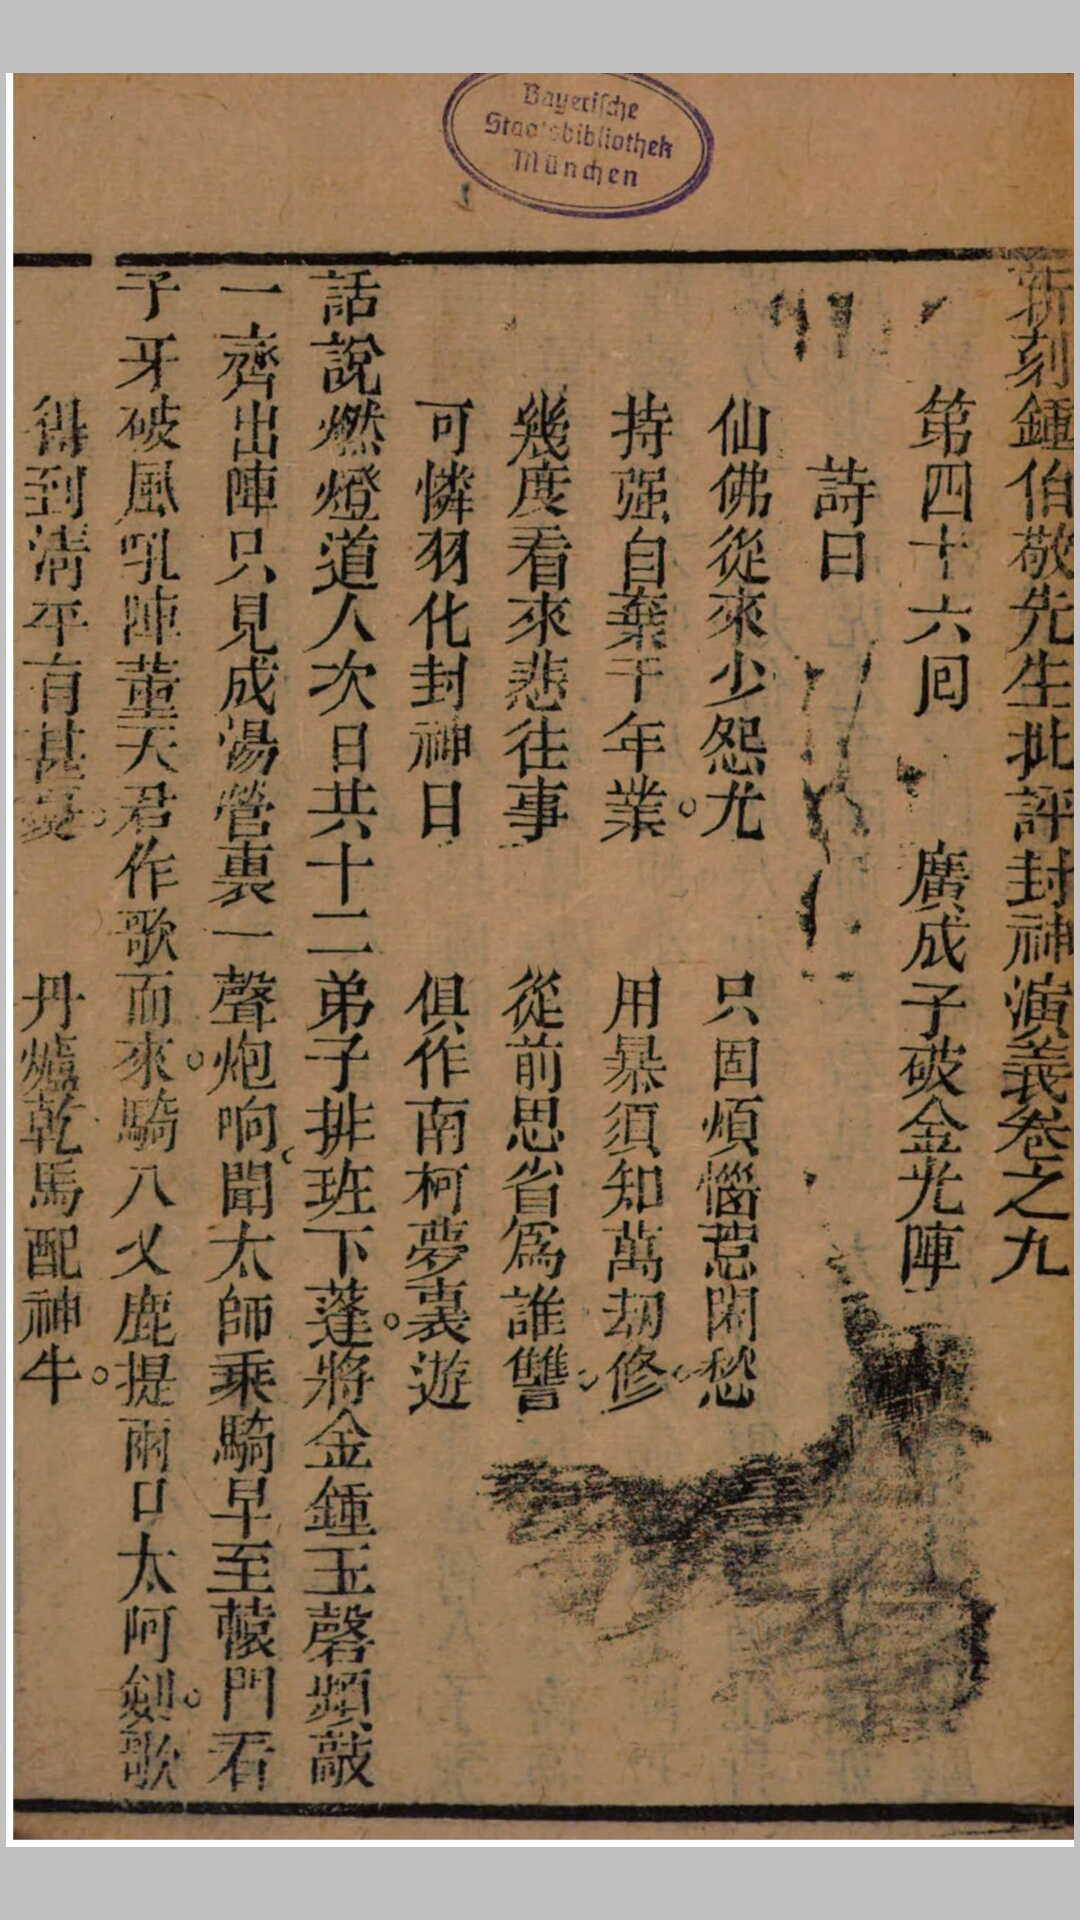 Bayerische
Staatsbibliothek
München
新刻鍾伯敬先生批評封神演義卷之九
第四十六囘 廣成子破金光陣
詩曰
仙佛從來少怨尤 只因煩惱惹閑愁
持强自棄千年業。 用暴須知萬刼修。
幾度看來悲往事 從前思省爲誰讐。
可憐羽化封神日 俱作南柯夢裏遊
話說燃燈道人次日共十二弟子排班下蓬。將金鍾玉磬頻敲
一齊出陣只見成湯營裏一聲炮响、聞太師乘騎早至轅門看
子牙破風吼陣董天君作歌而來。騎八乂鹿提兩口太阿劍。歌
得到淸平有甚憂。 丹爐乾馬配神牛。